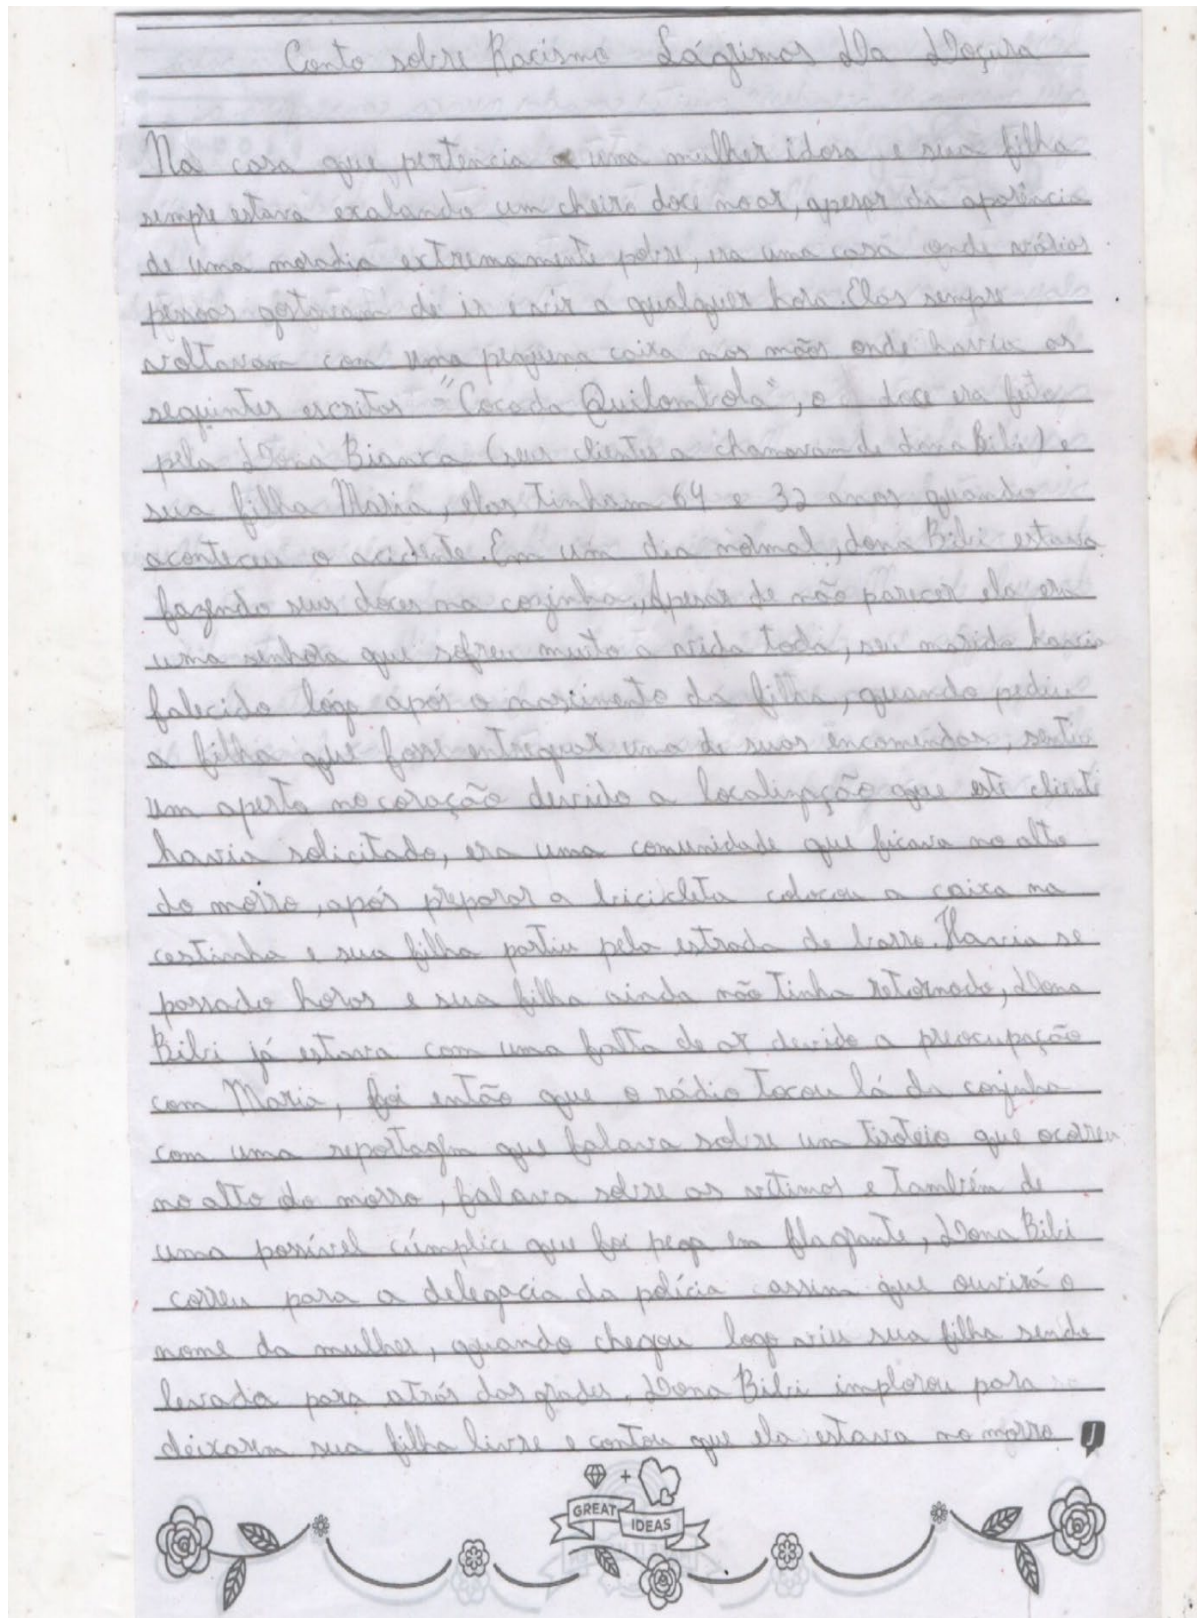 Conto sobre Racismo Lágrimas Da Doçura
Na casa que pertencia a uma mulher idosa e sua filha
sempre estava exalando um cheiro doce no ar, apesar da aparência
de uma moradia extremamente pobre, era uma casa onde várias
pessoas gostavam de ir e vir a qualquer hora. Elas sempre
voltavam com uma pequena caixa nas mãos onde havia as
seguintes escritas "Cocada Quilombola", o doce era feito
pela Dona Bianca (seus clientes a chamavam de dona Bibi) e
sua filha Maria, elas tinham 64 e 32 anos quando
aconteceu o acidente. Em um dia normal, dona Bibi estava
fazendo seus doces na cozinha, Apesar de não parecer ela era
uma senhora que sofreu muito a vida toda, seu marido havia
falecido lógo após o nascimento da filha, quando pediu
a filha que fosse entregar uma de suas encomendas, sentiu
um aperto no coração devido a localização que este cliente
havia solicitado, era uma comunidade que ficava no alto
do morro, após preparar a bicicleta colocou a caixa na
cestinha e sua filha partiu pela estrada de barro. Havia se
passado horas e sua filha ainda não tinha retornado, Dona
Bibi já estava com uma falta de ar devido a preocupação
com Maria, foi então que o rádio tocou lá da cozinha
com uma reportagen que falava sobre um tiroteio que ocorreu
no alto do morro, falava sobre as vitimas e também de
uma possível cúmplice que foi pega em flagrante, Dona Bibi
correu para a delegacia da polícia assim que ouvirá o
nome da mulher, quando chegou logo viu sua filha sendo
levada para atrás das grades. Dona Bibi implorou para
deixarem sua filha livre e contou que ela estava no morro
J
GREAT IDEAS